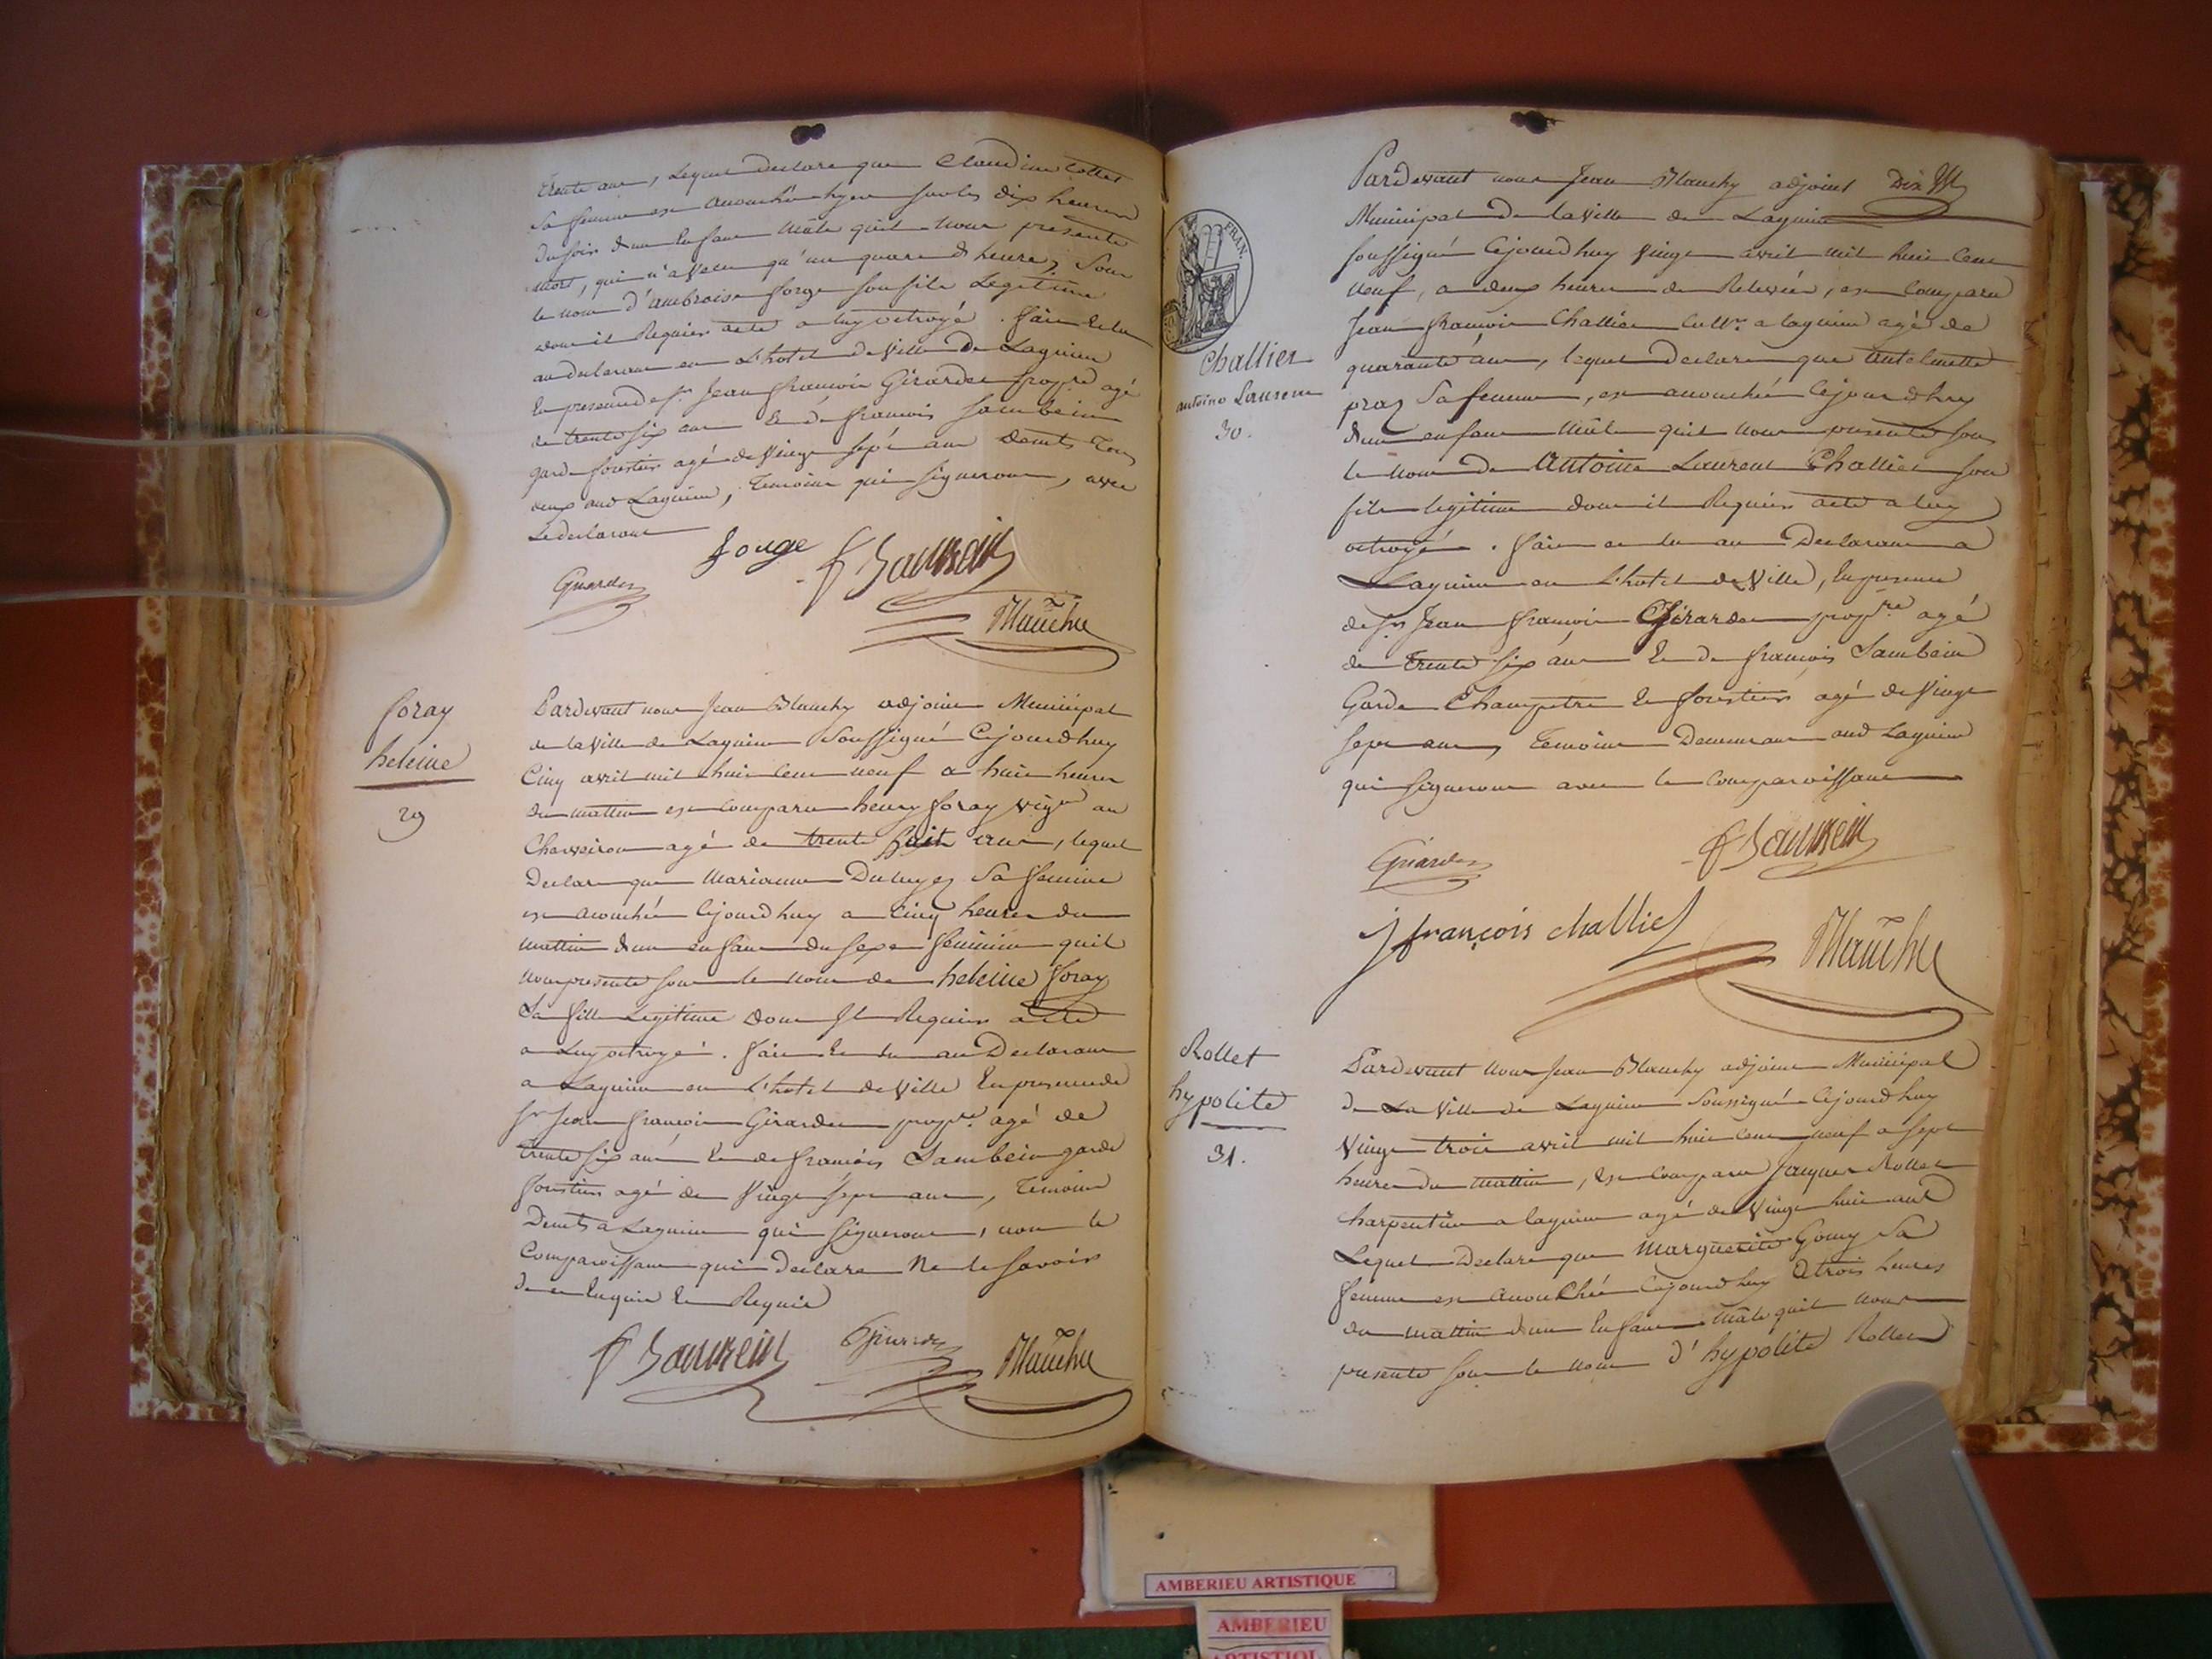 trente ans, lequel declare que Claudine Cottet
sa femme est accouchée hyer sur les dix heures
du soir d'un Enfant mâle qu'il nous presente
mort, qui n'a vecu qu'un quart d'heure, sous
le nom d'ambroise forge son fils Legitime
dont il Requier acte a luy octroyé. fait et lu
au declarant en L'hotel de Ville de Lagnieu
En presence de Sr Jean françois Girardet propre agé
de trente six ans Et de françois Sambein
garde forestier agé de Vingt sept ans demts tous
deux aud Lagnieu, Temoins qui signeront, avec
Le declarant
forge
Girardet
Blanchy
foray
heleine
29
Pardevant nous Jean Blanchy adjoint Municipal
de la Ville de Lagnieu Soussigné Cejourdhuy
Cinq avril mil huit Cent neuf a huit heures
du mattin est comparu henry foray vign au
Charveiron agé de trente huit ans, lequel
Declare que Marianne sa femme
est accouchée Cejourdhuy a Cinq heures du
mattin d'un enfant du sexe feminin quil
nous presente sous le nom de heleine foray
Sa fille Legitime dont Il Requier acte
a Luy octroyé. fait Et lu au Declarant
a Lagnieu en l'hotel de Ville En presence de
Sr Jean françois Girardet propre agé de
trente six ans Et de françois Sambein garde
forestier agé de Vingt sept ans, Temoins
Demts a Lagnieu qui signeront, non le
Comparoissant qui declare Ne le savoir
de ce Enquis Et Requis
Girardet
Blanchy
FRAN.
Challier
antoine Laurent
30.
Pardevant nous Jean Blanchy adjoint Dix
Municipal De la Ville de Lagnieu
soussigné Cejourdhuy Vingt avril mil huit Cent
neuf, a deux heures de Relevée, est Comparu
Jean françois Challier cultr a lagnieu agé de
quarante ans, lequel declare que antelmette
praz Sa femme, est accouchée Cejourdhuy
d'un enfant Mâle quil nous presente sous
le nom De Antoine Laurent Challier son
fils legitime dont il Requier acte a luy
octroyé. fait et lu au Declarant a
Lagnieu en L'hotel de Ville, En presence
de Sr Jean françois Girardet propre agé
de trente six ans Et de françois Sambein
Garde Champetre Et forestier agé de Vingt
sept ans, Temoins Demeurant aud Lagnieu
qui signeront avec le Comparoissant
Girardet
jfrançois challier
Blanchy
Rollet
hypolite
31.
Pardevant nous Jean Blanchy adjoint Municipal
de La Ville de Lagnieu Soussigné Cejourdhuy
Vingt trois avril mil huit Cent neuf a sept
heures du mattin, Est Comparu Jacques Rollet
charpentier a lagnieu agé de Vingt huit ans
Lequel Declare que Marguerite Gouy Sa
femme est accouchée Cejourdhuy a trois heures
du mattin d'un Enfant Mâle quil nous
presente sous le nom d'hypolite Rollet
AMBERIEU ARTISTIQUE
AMBERIEU